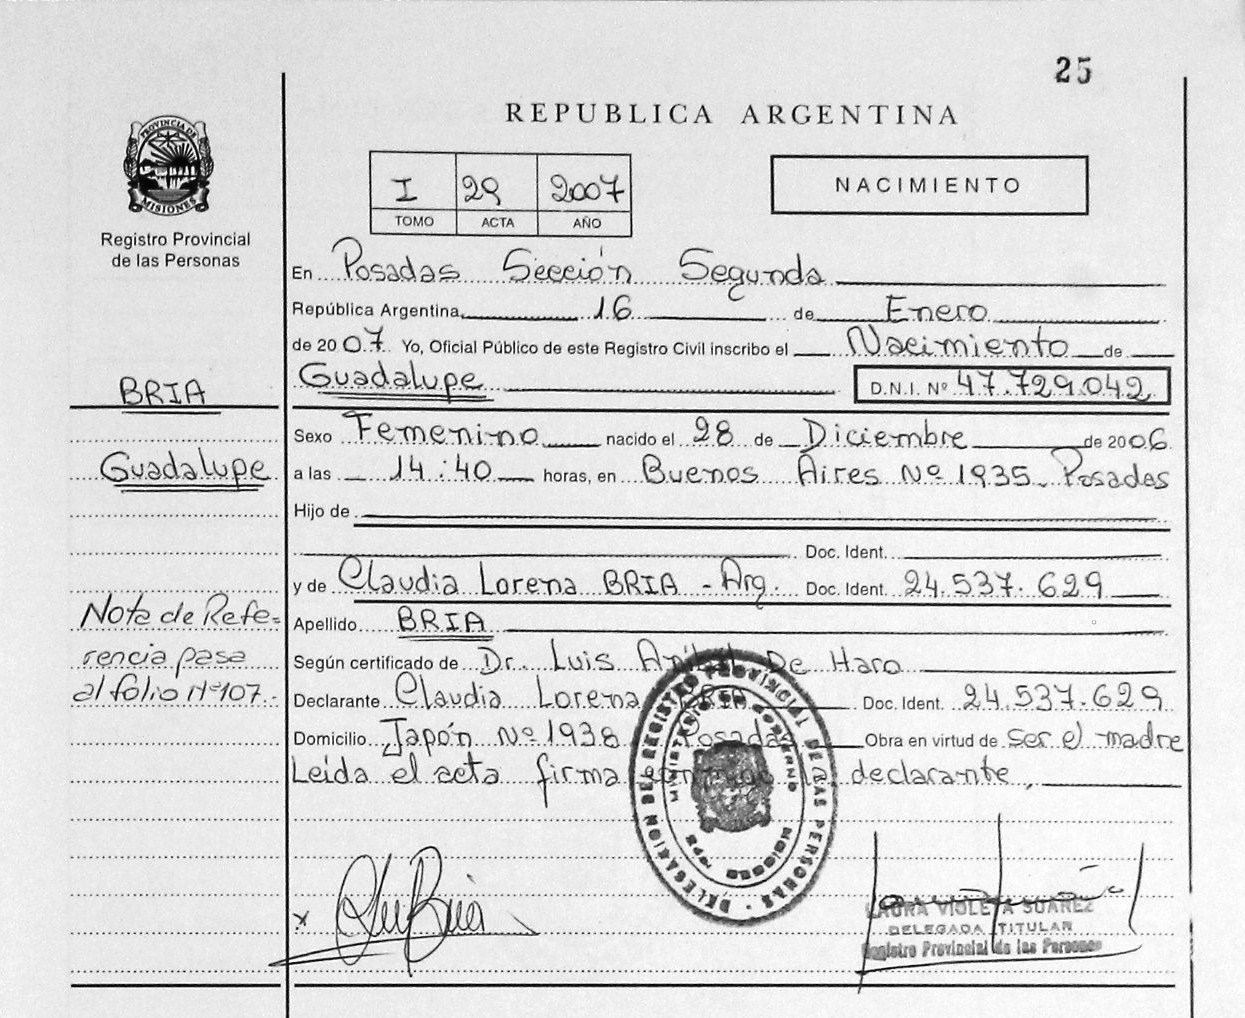 25
REPUBLICA ARGENTINA
PROVINCIA DE
MISIONES
Registro Provincial
de las Personas
I 29 2007
TOMO ACTA AÑO
NACIMIENTO
En Posadas Sección Segunda
República Argentina, 16 de Enero
de 2007. Yo, Oficial Público de este Registro Civil inscribo el Nacimiento de
Guadalupe D.N.I. Nº 47.729.042
BRIA
Sexo Femenino nacido el 28 de Diciembre de 2006.
Guadalupe
a las 14:40 horas, en Buenos Aires Nº 1935. Posadas
Hijo de
Doc. Ident.
y de Claudia Lorena BRIA - Arg. Doc. Ident. 24.537.629
Nota de Refe=
rencia pasa
al folio Nº 107.-
Apellido BRIA
Según certificado de Dr. Luis Anibal De Haro
Declarante Claudia Lorena BRIA Doc. Ident. 24.537.629
Domicilio Japón Nº 1938 Posadas Obra en virtud de ser el madre
Leída el acta firma conmigo la declarante,
DELEGACION DEL REGISTRO PROVINCIAL DE LAS PERSONAS
MINISTERIO DE GOBIERNO
MISIONES
x
LAURA VIOLETA SUAREZ
DELEGADA TITULAR
Registro Provincial de las Personas